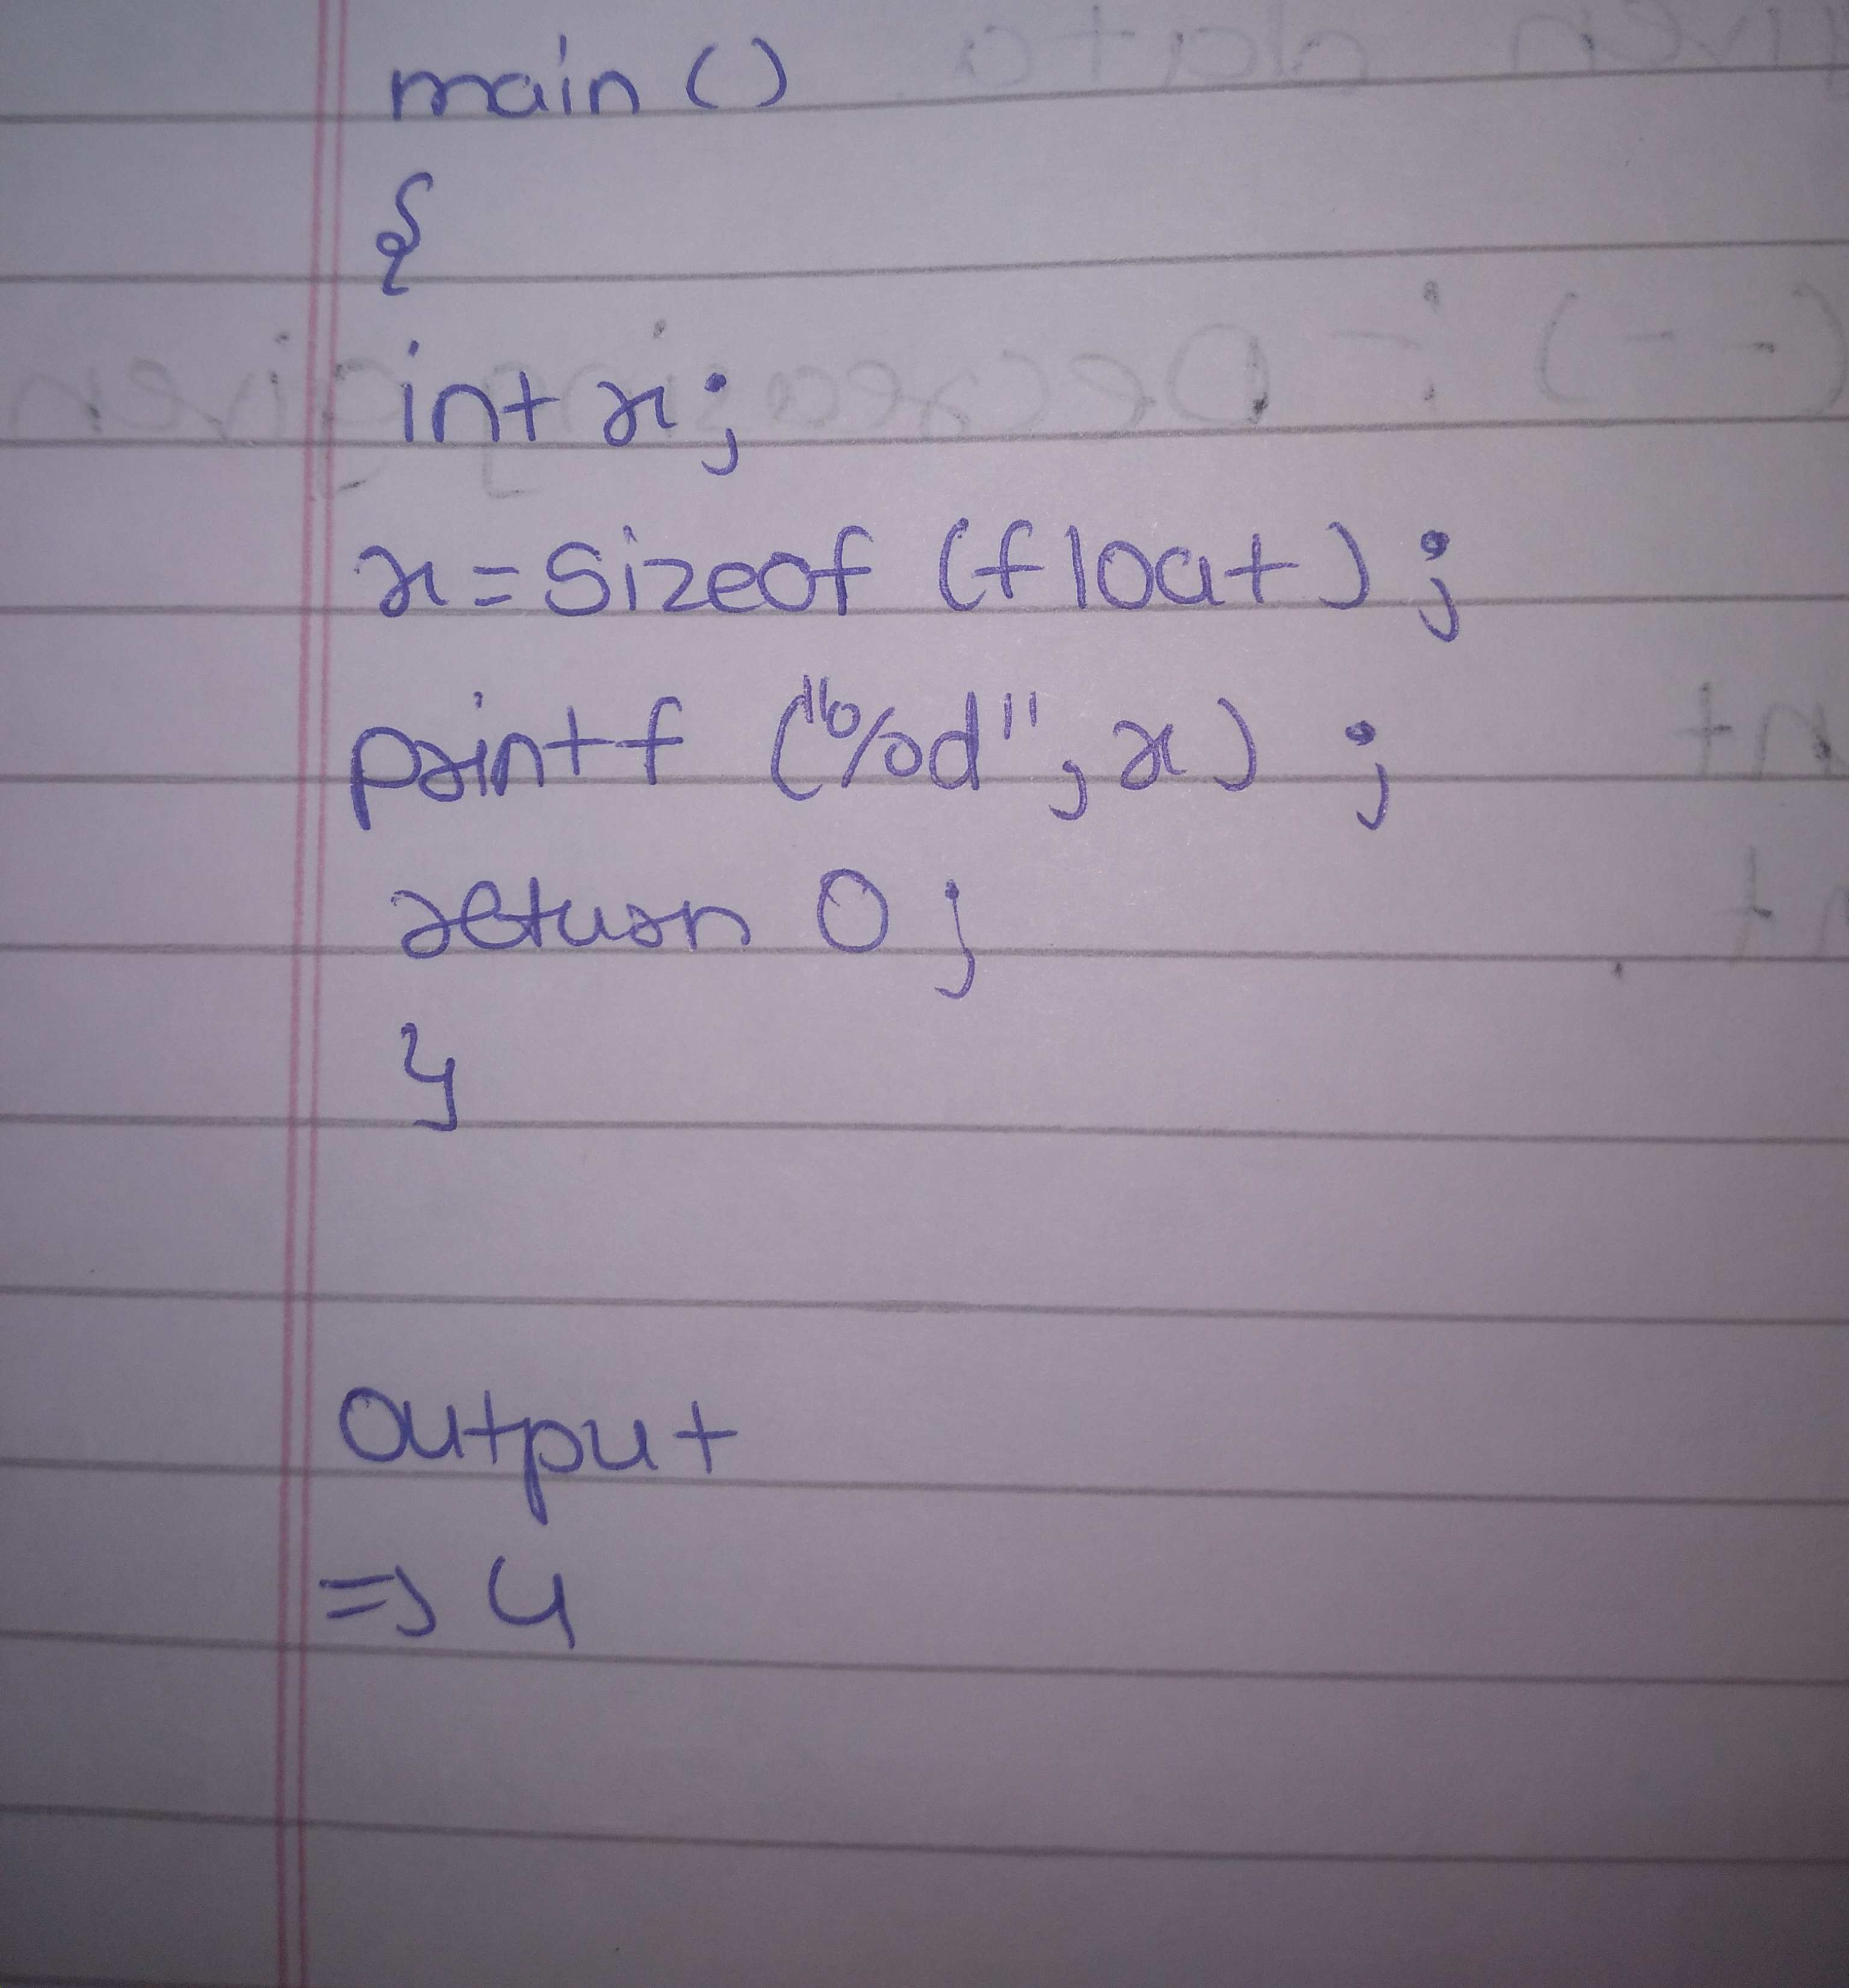 main ()
{
int x;
x = sizeof (float);
printf ("%d", x);
return 0;
}
Output
=> 4